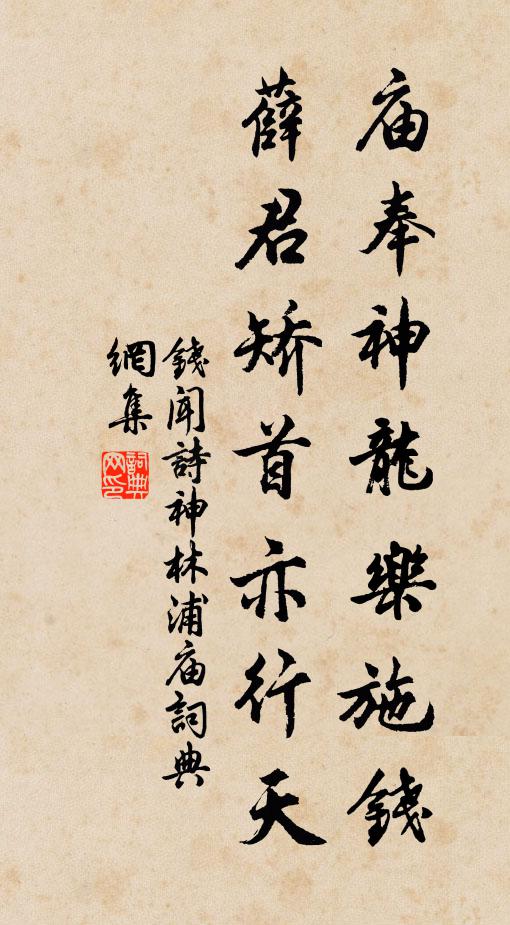 庙奉神龍樂施錢
薛君矫首亦行天
錢闻詩神林浦庙詞典
網集
詞典
网印